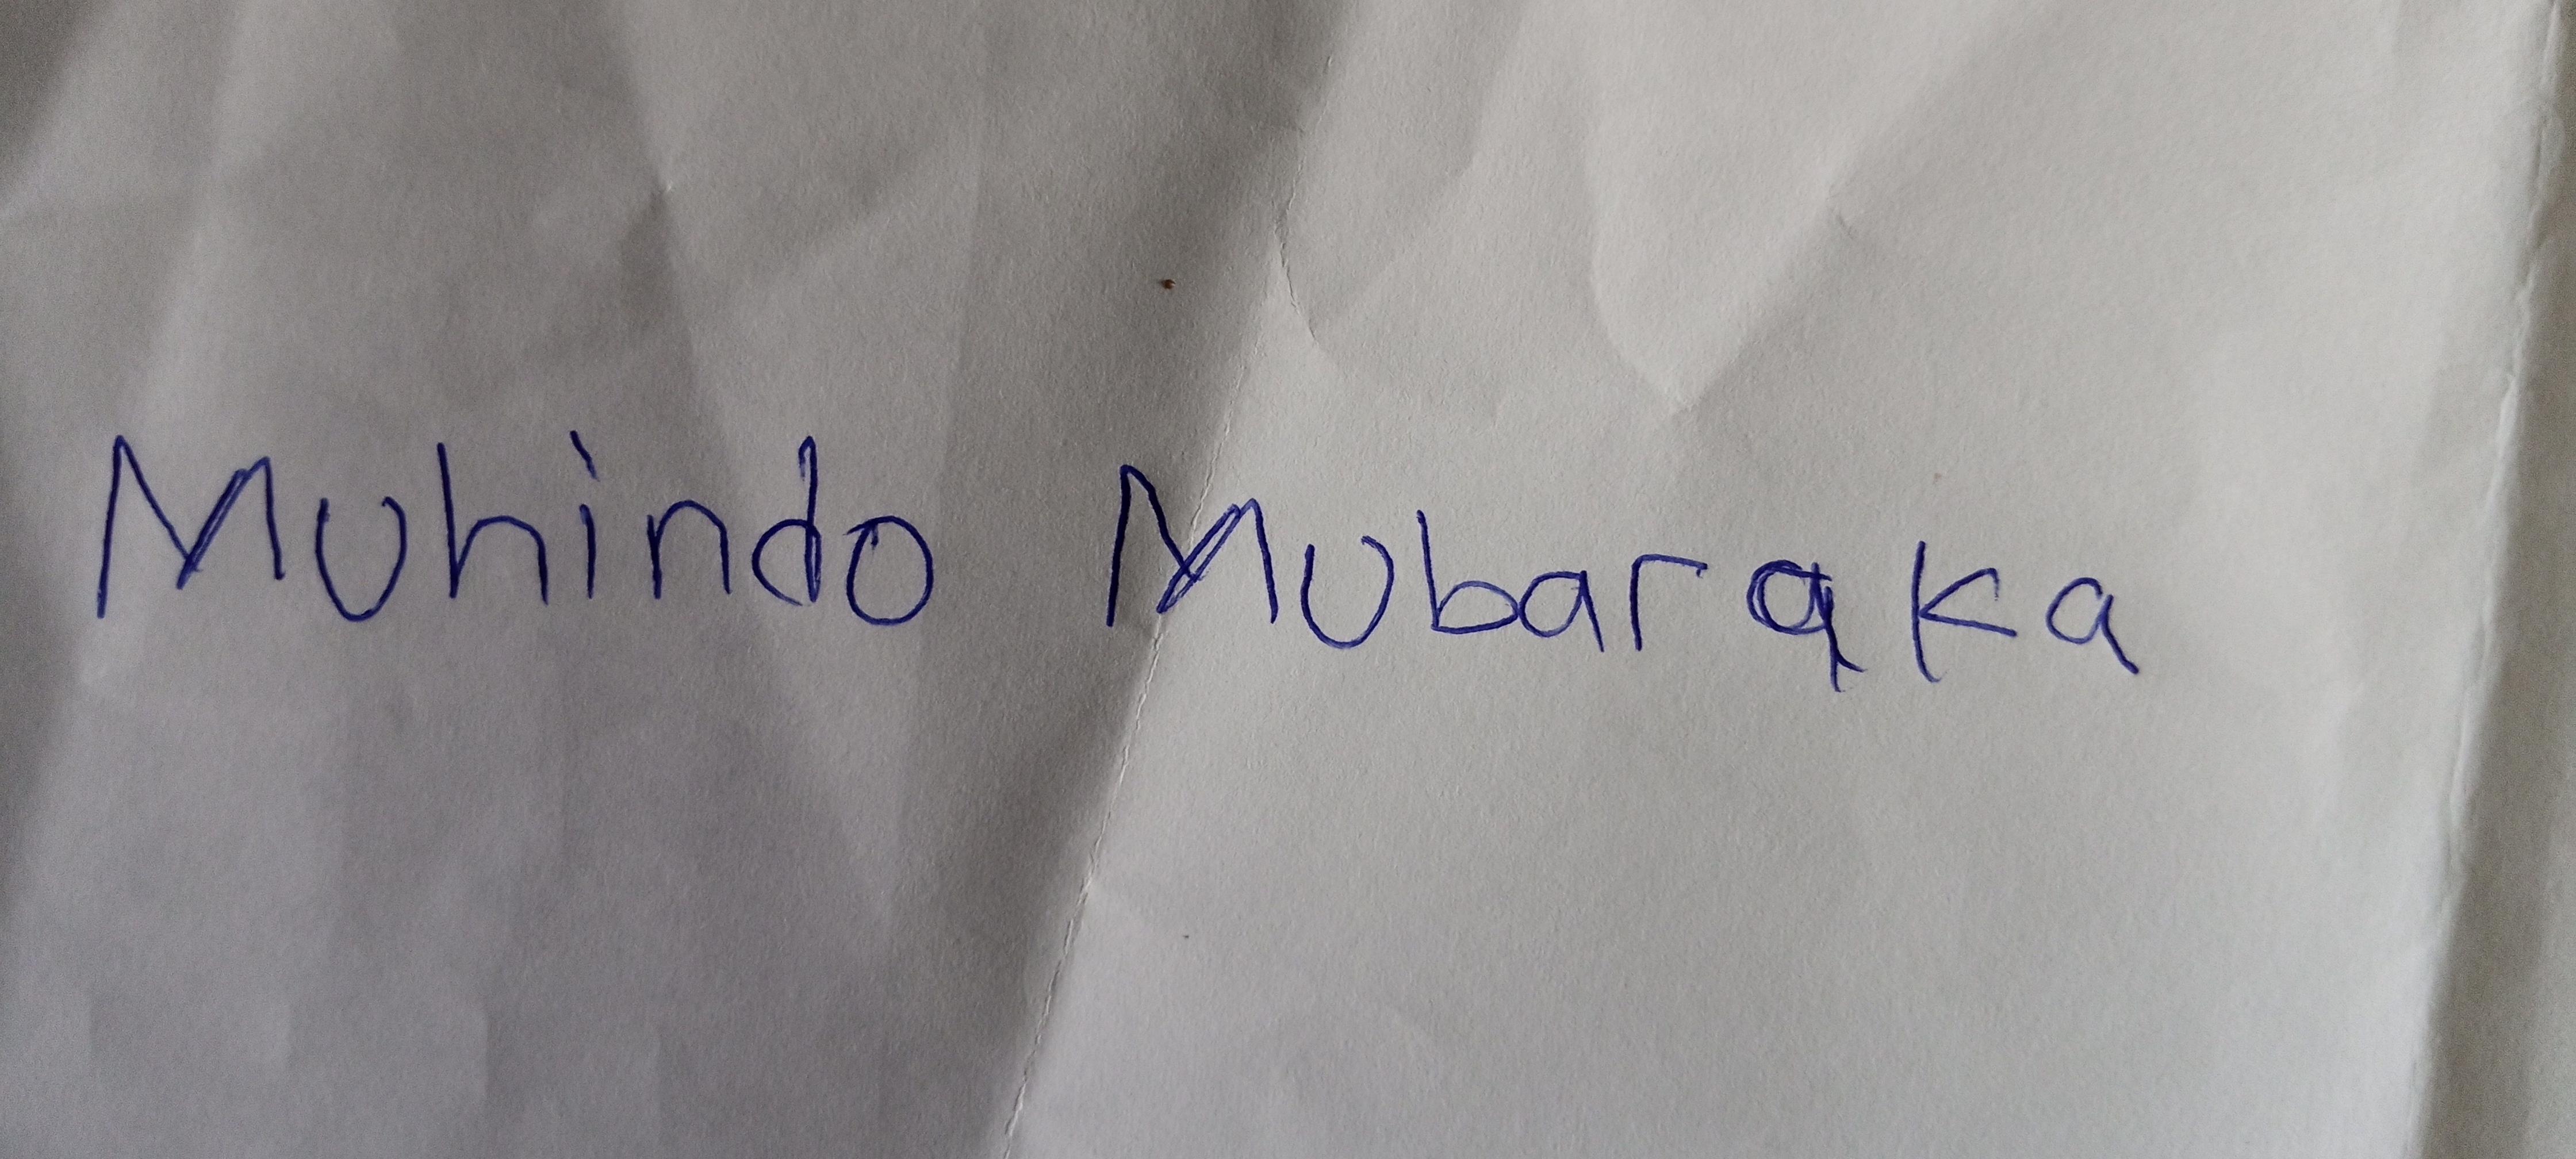 Muhindo Mubaraka